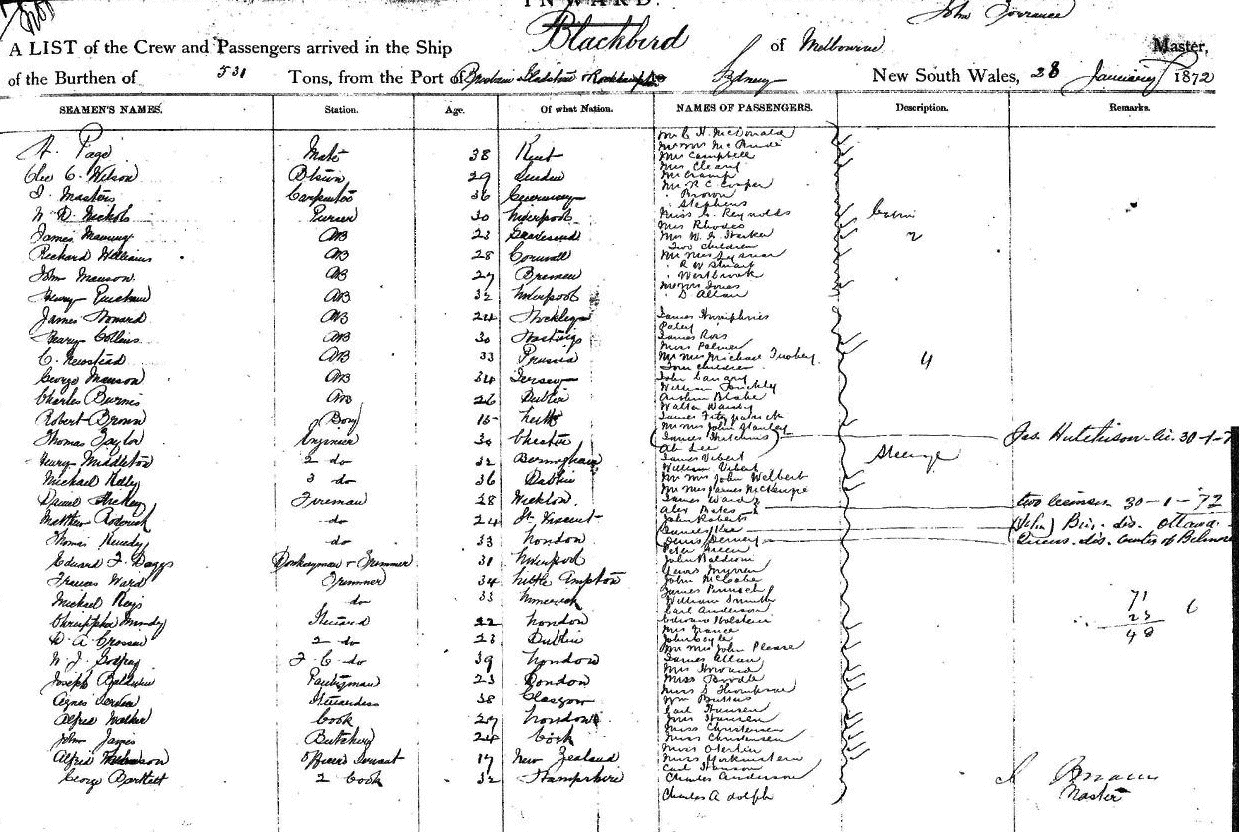 INWARD.
John Torrance
A LIST of the Crew and Passengers arrived in the Ship Blackbird of Melbourne Master,
of the Burthen of 531 Tons, from the Port of Brisbane Gladstone & Rockhampton Sydney New South Wales, 28 January 1872
SEAMEN'S NAMES. Station. Age. Of what Nation. NAMES OF PASSENGERS. Description. Remarks.
H. Page Mate 38 Kent
Geo C. Wilson Bosun 29 London
J. Masters Carpenter 36 Guernsey
W D Nichols Purser 30 Liverpool
James AB 23 Gravesend
Richard Williams AB 28 Cornwall
John Manson AB 27 Bremen
Henry AB 32 Liverpool
James Howard AB 24
Henry Collins AB 30 Hastings
C. Newstead AB 33 Prussia
George Manson AB 34 Jersey
Charles Burns AB 26 Dublin
Robert Brown Boy 15 Leith
Thomas Taylor Engineer 30 Chester
Henry Middleton 2 do 32 Bermingham
Michael Kelly 3 do 36 Dublin
Daniel Fireman 28 Wicklow
Matthew Roderick do 24 St Vincent
Thomas do 33 London
Edward J. Daggs Donkeyman & Trimmer 31 Liverpool
Francis Ward Trimmer 34 Little Ampton
Michael Keys do 33 Limerick
Christopher Steward 22 London
A 2 do 23 Dublin
W. J. Godfrey F C do 39 London
Joseph Baldwin Pantryman 23 London
Agnes Stewardess 38 Glasgow
Alfred Walker Cook 27 London
John James Butcher 24 Cork
Alfred Officers Servant 17 New Zealand
George Bartlett 2 Cook 32 Hampshire
Mr C H. McDonald
Mr Mrs
Mrs Campbell
Mrs Cleary
Mr Cramp
Mr R C Cooper
" Brown
" Stephens
Miss L. Reynolds Cabin
Mrs Rhodes
Mrs W. J. Harker 2
Two children
Mr Mrs
" R W Stuart
" Westbrook
Mr Mrs Jones
" D Allan
James Humphries
Paley
James Ross
Miss Palmer
Mr Mrs Michael Tuohey 4
Four children
John
William
Blake
Walter
James Fitzpatrick
Mr Mrs John Stanley
(James Hutchins) Jas. Hutchison - lic. 30-1-7
Ah Lee
James Vibert Steerage
William Vibert
Mr Mrs John Welbert
Mr Mrs James McKenzie
James Ward two licenses 30-1-72
Alex
John Roberts (John) Bri. dis. Ottawa
James
(Denis dis. Countess of Belmore
Peter Green
John Baldwin
Lewis
John McCabe
James
William Smith 71
Carl Anderson 23
Edward Holstein 48
Mrs France
John Coyle
Mr Mrs John Please
James Allan
Mrs Howard
Miss Boodle
Miss S Thompson
Wm Butters
Carl Hansen
Mrs Hansen
Miss Christensen
Miss Christensen
Miss
Miss
Carl Hanson
Charles Anderson
Charles Adolph
Master